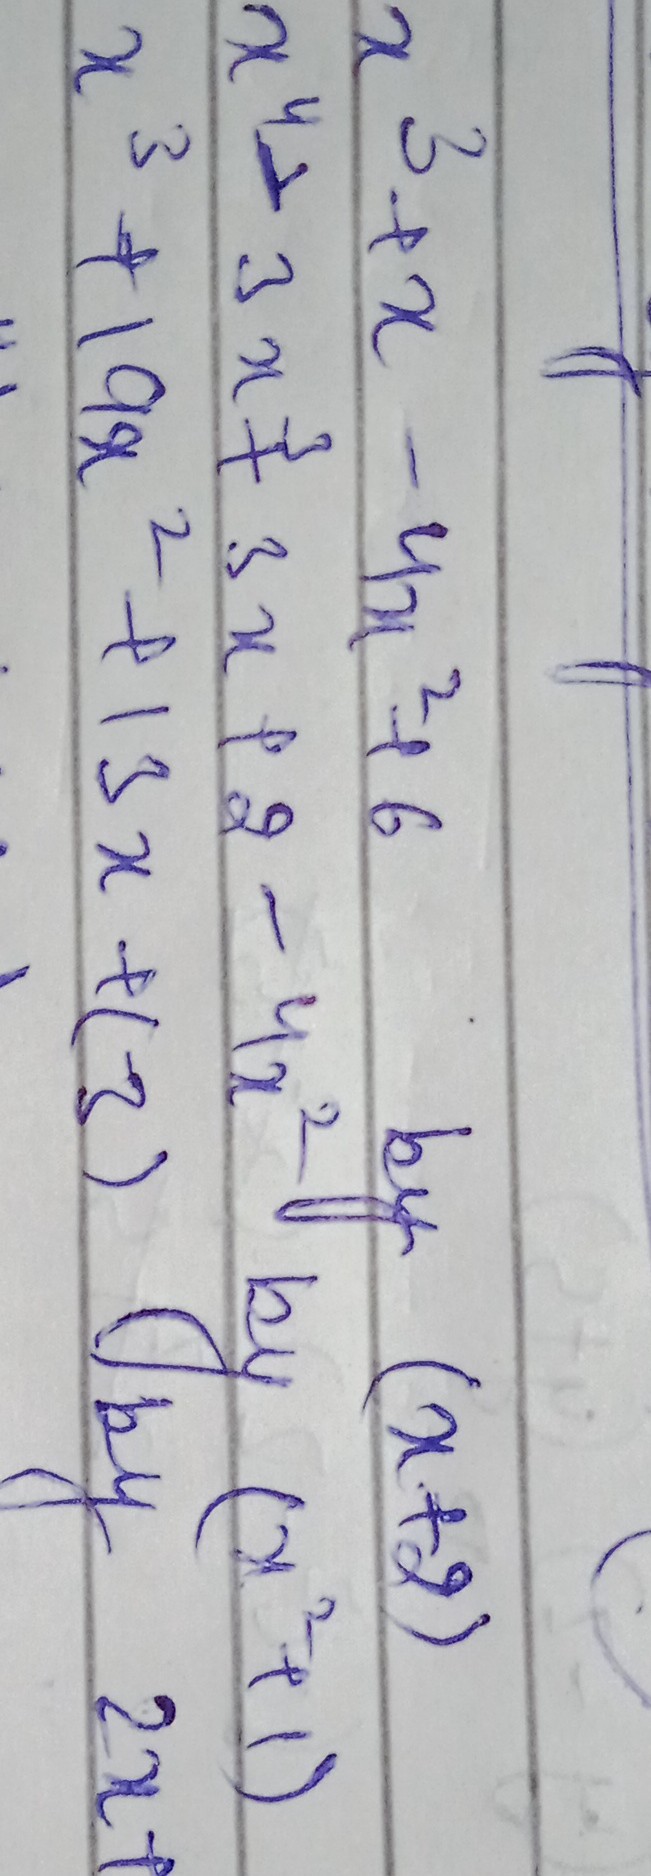 x³ + x - 4x² + 6 by (x+2)
x⁴ - 3x³ + 3x + 2 - 4x² by (x² + 1)
x³ + 19x² + 13x + (-3) by 2x+